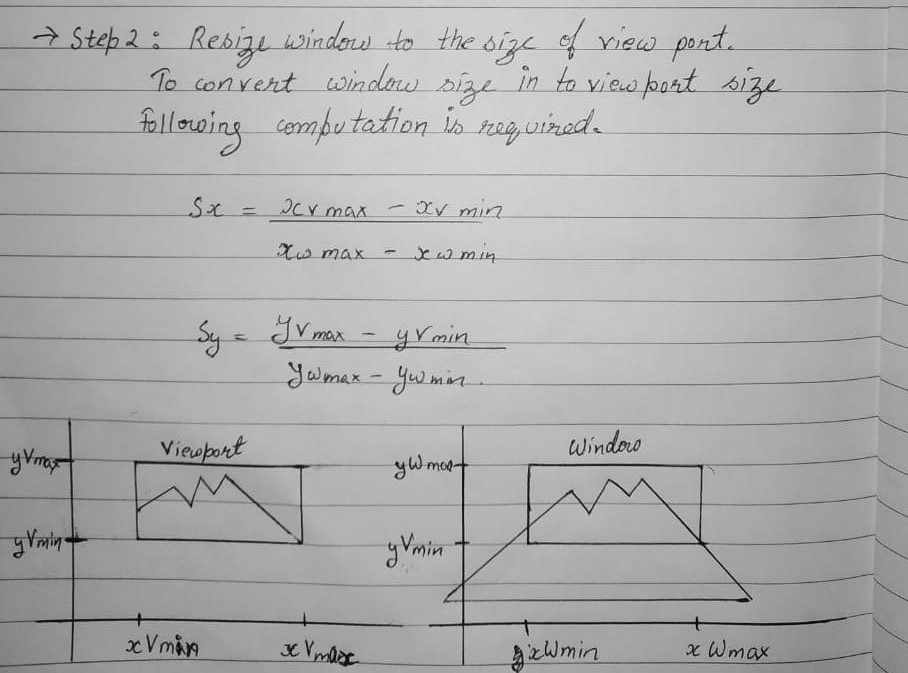 → Step 2: Resize window to the size of view port.
To convert window size in to view port size
following computation is required.
Sx = xv max - xv min
xw max - xw min
Sy = yv max - yv min
yw max - yw min.
Viewport
Window
yVmax
yWmax
yVmin
yVmin
xVmin
xVmax
xWmin
xWmax